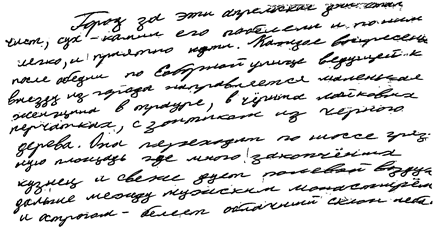 Город за эти апрельские дни стал
чист, сух - камни его побелели и по ним
легко, и приятно идти. Каждое воскресенье
после обедни по Соборной улице ведущей к
выезду из города направляется маленькая
женщина в трауре, в чёрных лайковых
перчатках, с зонтиком из чёрного
дерева. Она переходит по шоссе гряз-
ную площадь где много закопчённых
кузниц и свежо дует полевой воздух
дальше между мужским монастырём
и острогом - белеет облачный склон неба